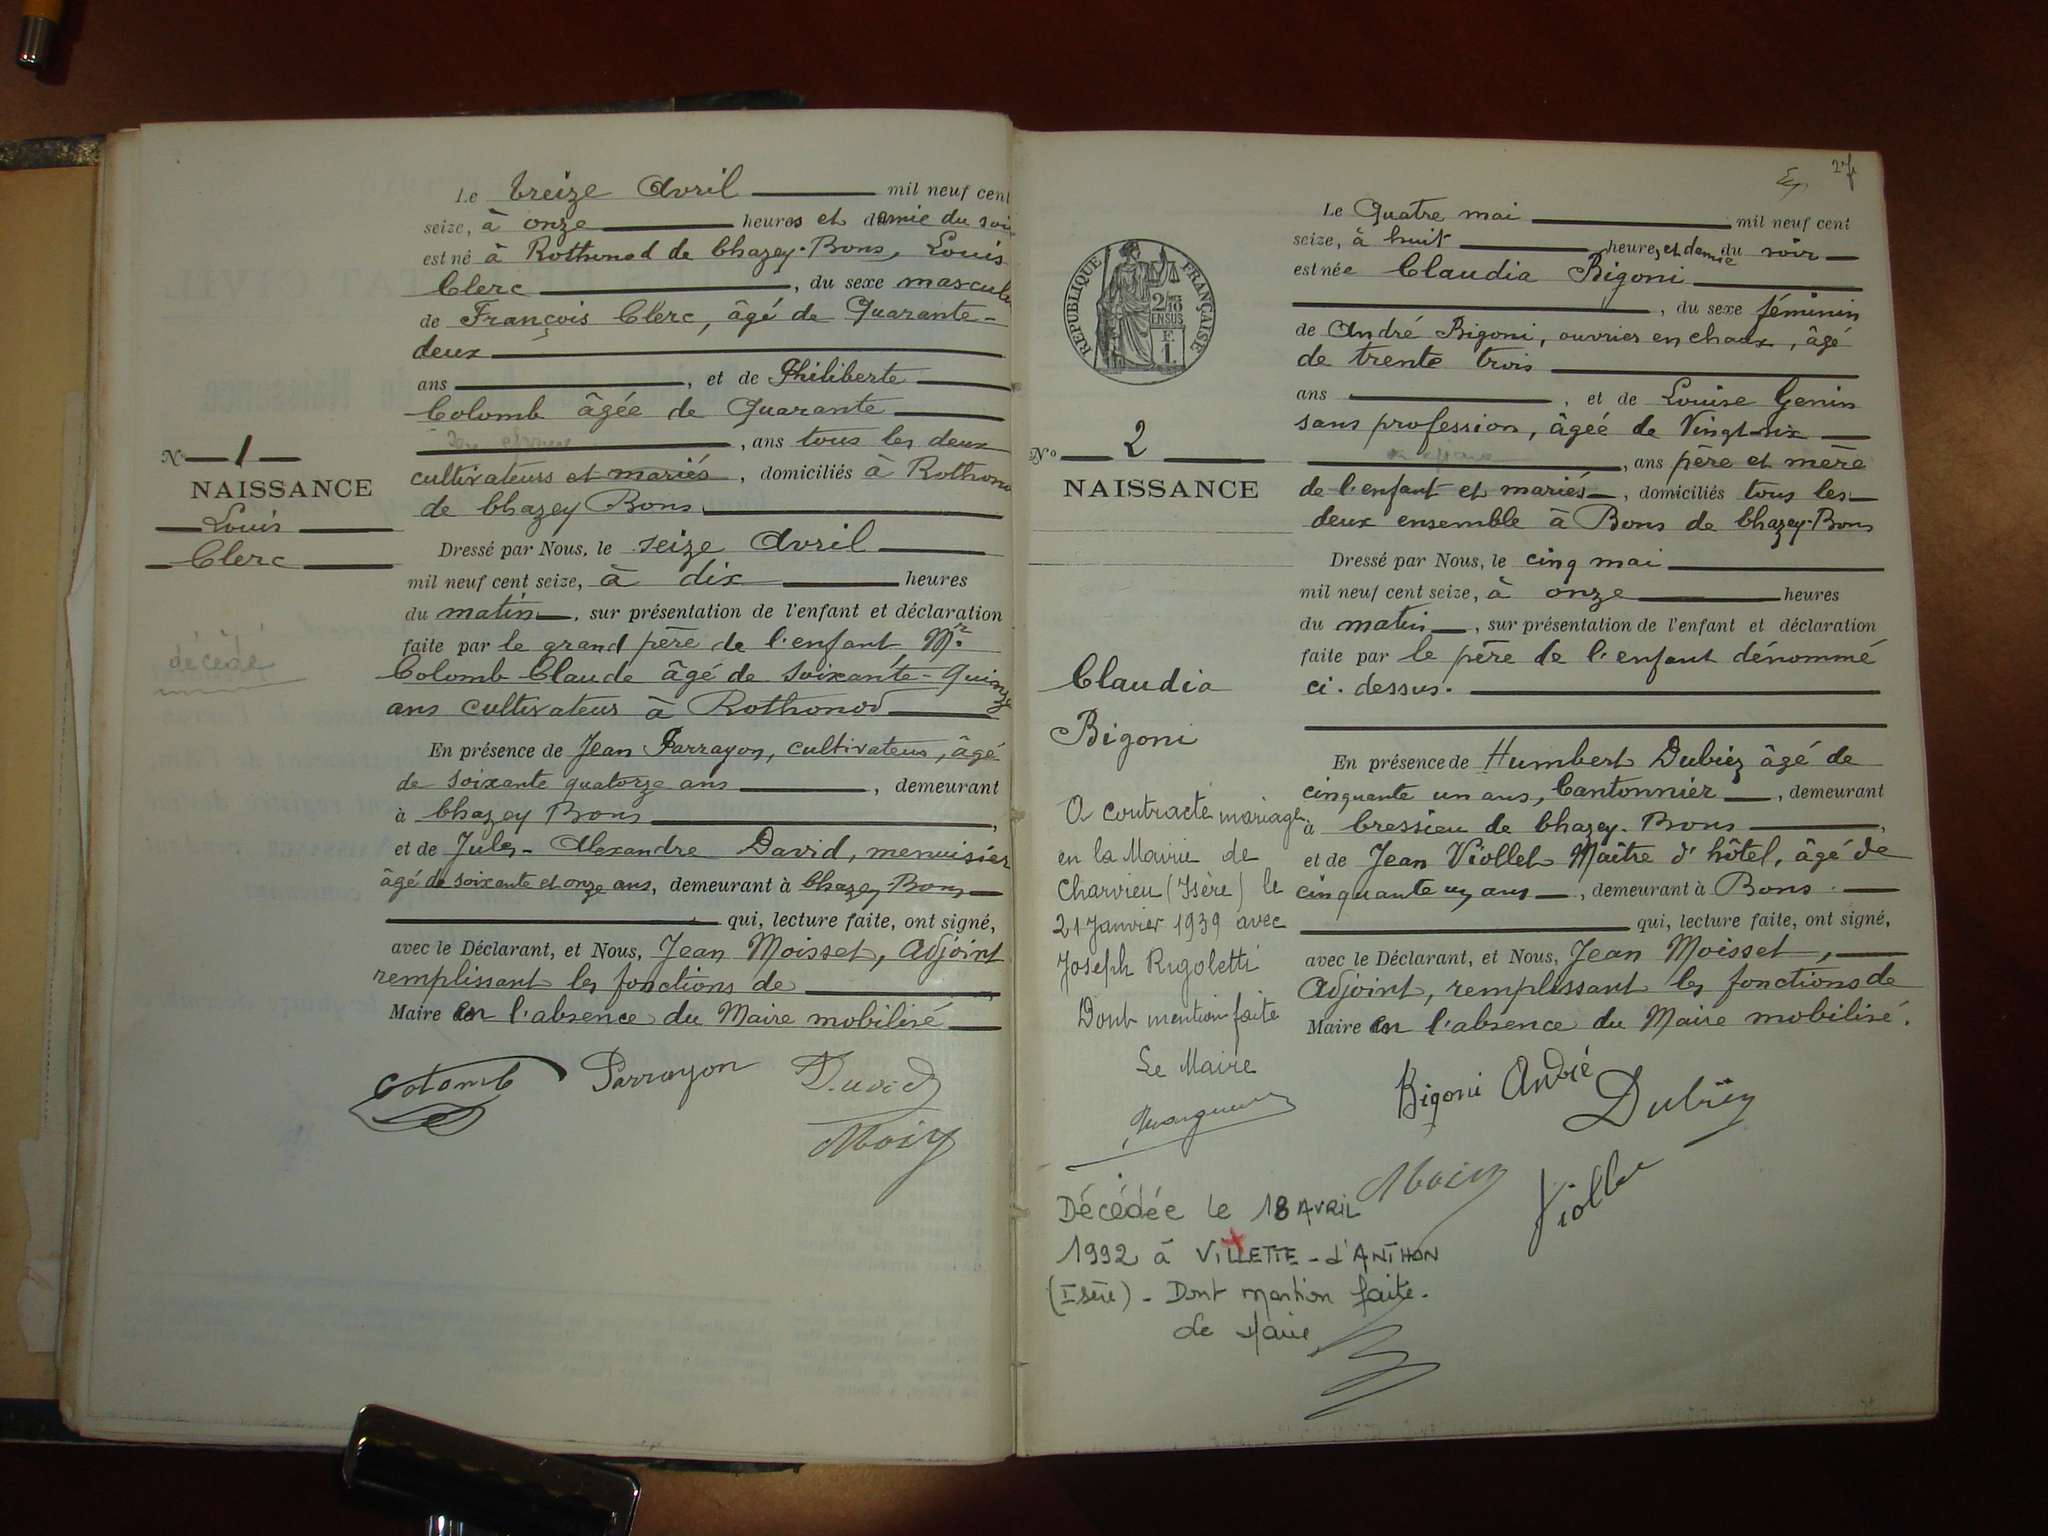 Le treize Avril mil neuf cent
seize, à onze heures et demie du soir
est né à Rothonod de Chazey-Bons, Louis
Clerc, du sexe masculin
de François Clerc, âgé de Quarante-
deux
ans, et de Philiberte
Colomb âgée de Quarante
, ans tous les deux
cultivateurs et mariés, domiciliés à Rothonod
de Chazey Bons
Dressé par Nous, le seize Avril
mil neuf cent seize, à dix heures
du matin, sur présentation de l'enfant et déclaration
faite par le grand père de l'enfant Mr
Colomb Claude âgé de soixante-quinze
ans cultivateur à Rothonod
En présence de Jean Parrayon, cultivateur, âgé
de soixante quatorze ans, demeurant
à Chazey Bons,
et de Jules-Alexandre David, menuisier
âgé de soixante et onze ans, demeurant à Chazey Bons
qui, lecture faite, ont signé,
avec le Déclarant, et Nous, Jean Moisset, Adjoint
remplissant les fonctions de
Maire en l'absence du Maire mobilisé
Colomb Parrayon David
N° 1
NAISSANCE
Louis
Clerc
décédé
Le Quatre mai mil neuf cent
seize, à huit heures et demie du soir
est née Claudia Bigoni
, du sexe féminin
de André Bigoni, ouvrier en chaux, âgé
de trente trois
ans, et de Louise Genin
sans profession, âgée de Vingt-six
, ans père et mère
de l'enfant et mariés, domiciliés tous les
deux ensemble à Bons de Chazey-Bons
Dressé par Nous, le cinq mai
mil neuf cent seize, à onze heures
du matin, sur présentation de l'enfant et déclaration
faite par le père de l'enfant dénommé
ci-dessus.
En présence de Humbert Dubiez âgé de
cinquante un ans, Cantonnier, demeurant
à Cressieu de Chazey-Bons,
et de Jean Viollet Maître d'hôtel, âgé de
cinquante un ans, demeurant à Bons
qui, lecture faite, ont signé,
avec le Déclarant, et Nous, Jean Moisset,
Adjoint, remplissant les fonctions de
Maire en l'absence du Maire mobilisé.
Bigoni André
RÉPUBLIQUE FRANÇAISE
2/10
EN SUS
F
1.
N° 2
NAISSANCE
Claudia
Bigoni
A contracté mariage
en la Mairie de
Charvieu (Isère) le
21 Janvier 1939 avec
Joseph Rigoletti
Dont mention faite
Le Maire
Décédée le 18 AVRIL
1992 à VILLETTE-d'ANTHON
(Isère) - Dont mention faite.
Le Maire